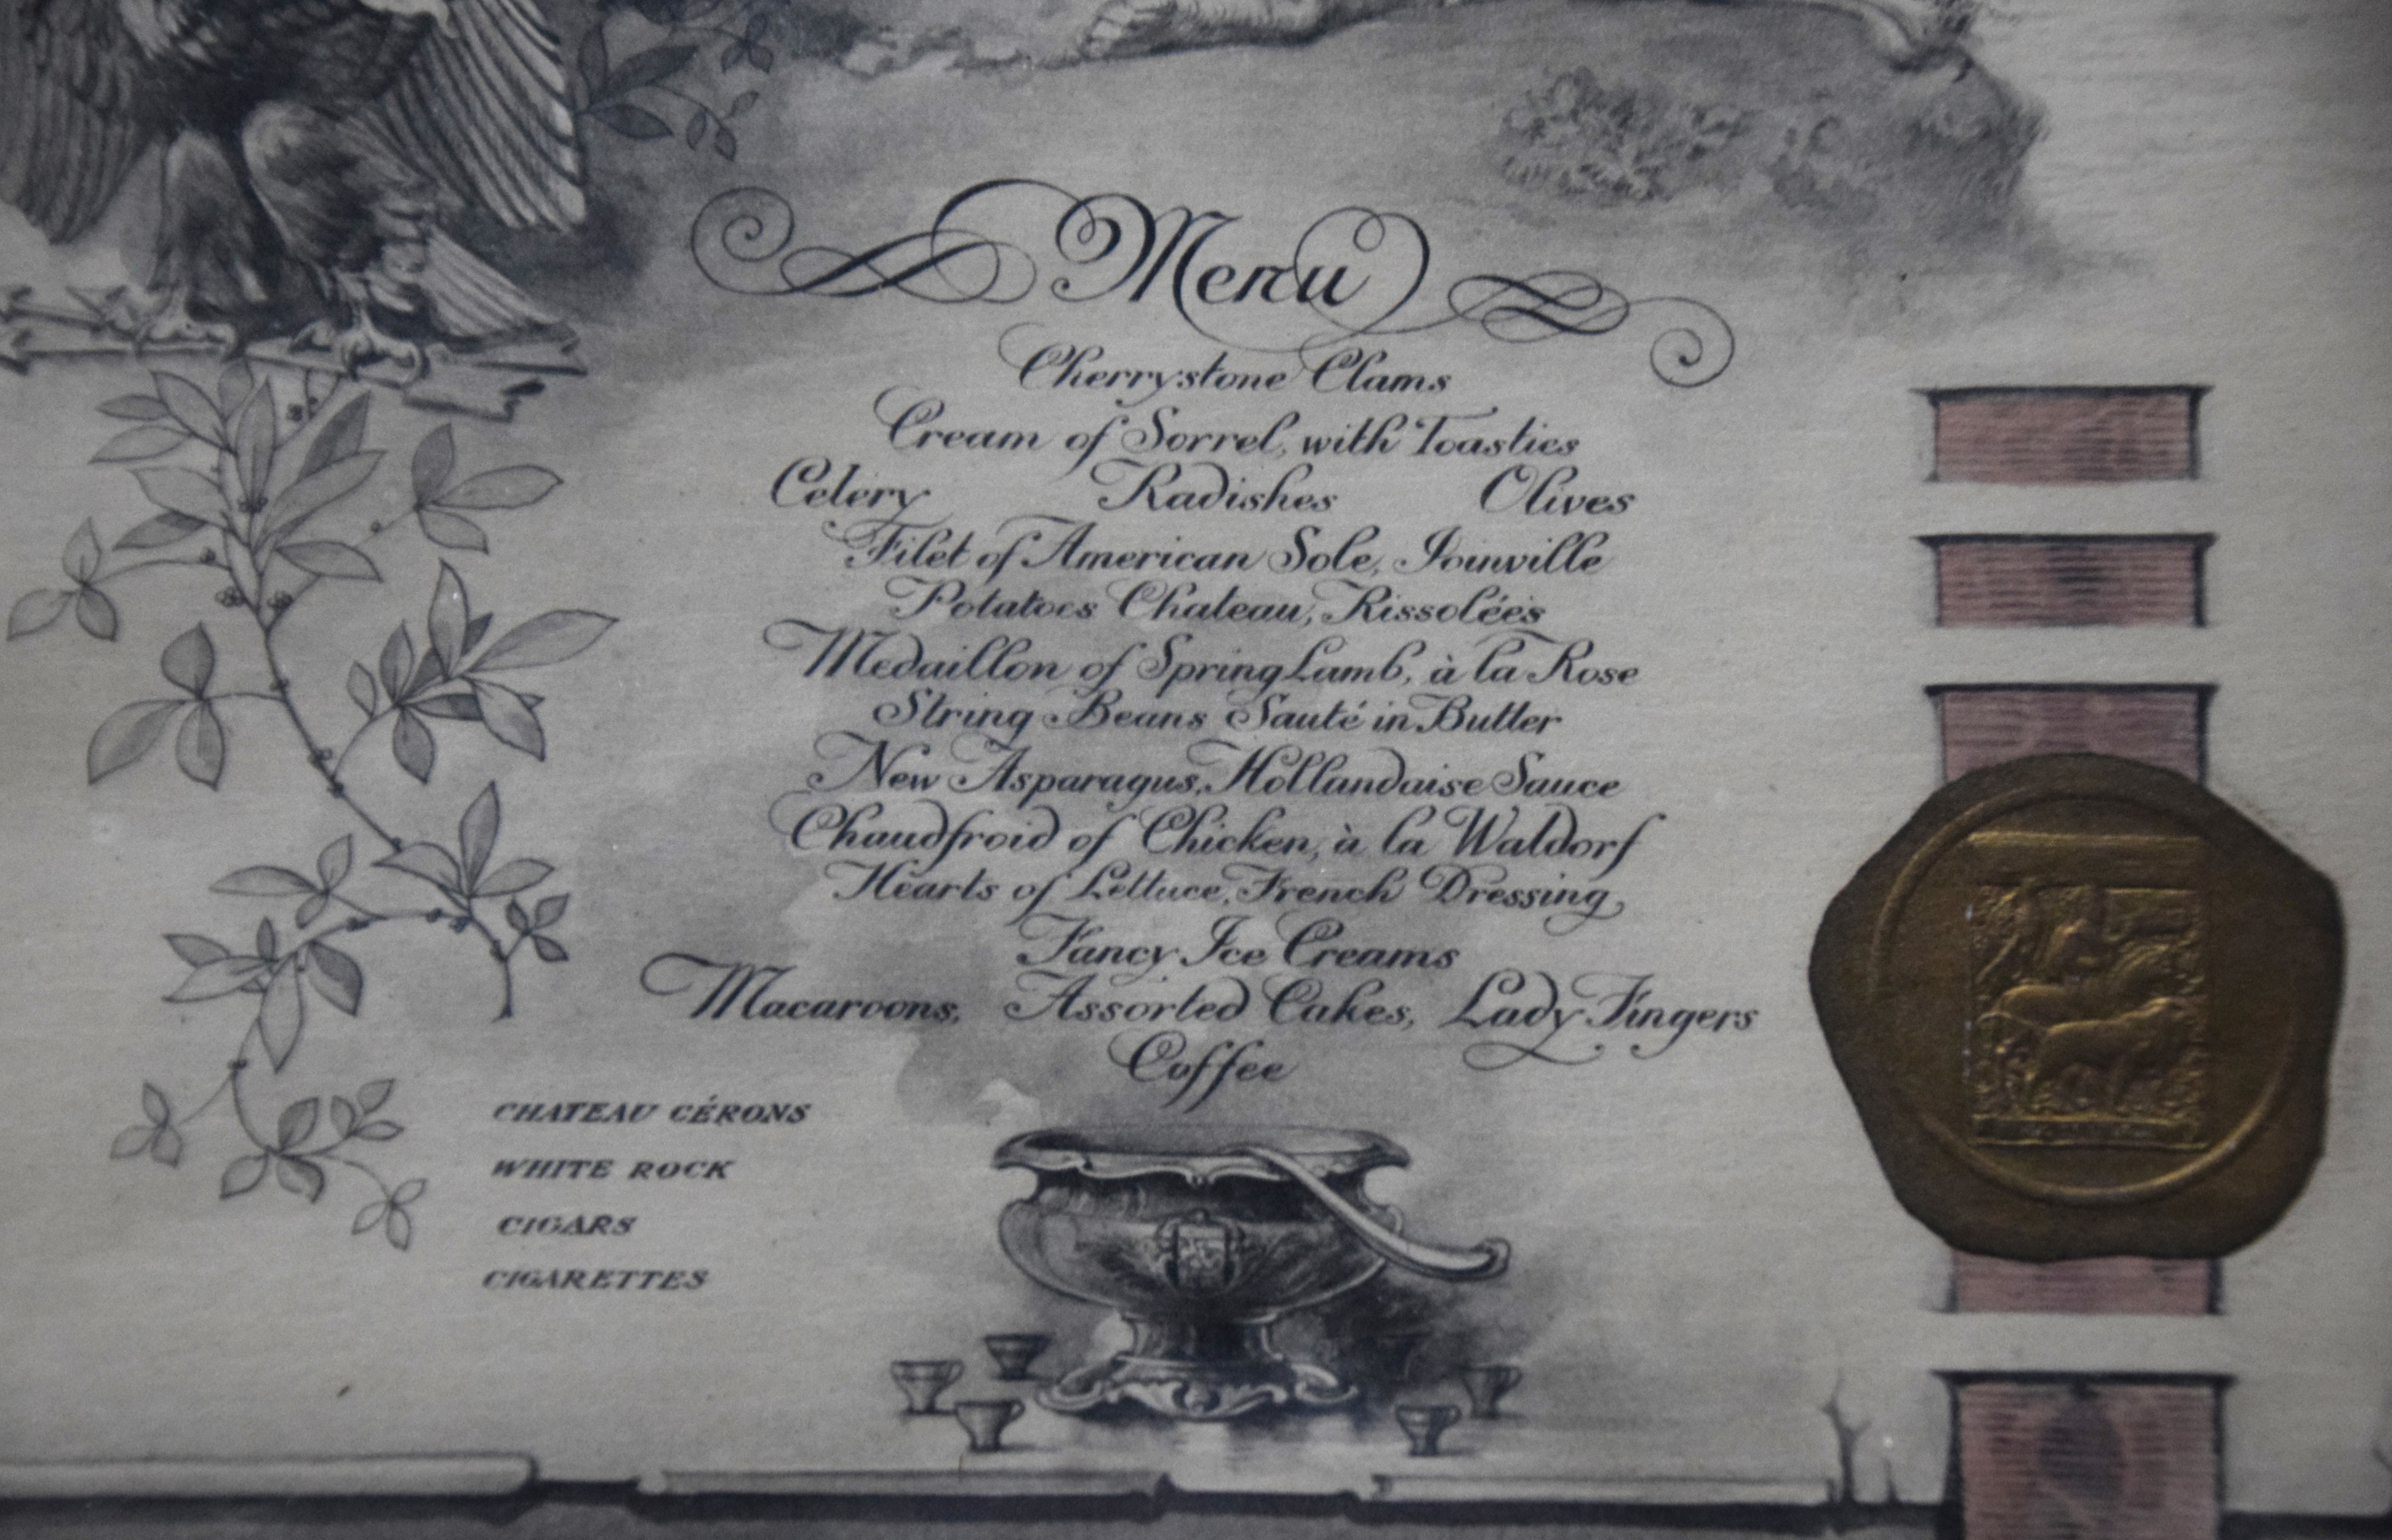 Menu
Cherrystone Clams
Cream of Sorrel, with Toasties
Celery Radishes Olives
Filet of American Sole, Joinville
Potatoes Chateau, Rissolées
Medaillon of Spring Lamb, à la Rose
String Beans Sauté in Butter
New Asparagus, Hollandaise Sauce
Chaudfroid of Chicken, à la Waldorf
Hearts of Lettuce, French Dressing
Fancy Ice Creams
Macaroons, Assorted Cakes, Lady Fingers
Coffee
CHATEAU CÉRONS
WHITE ROCK
CIGARS
CIGARETTES